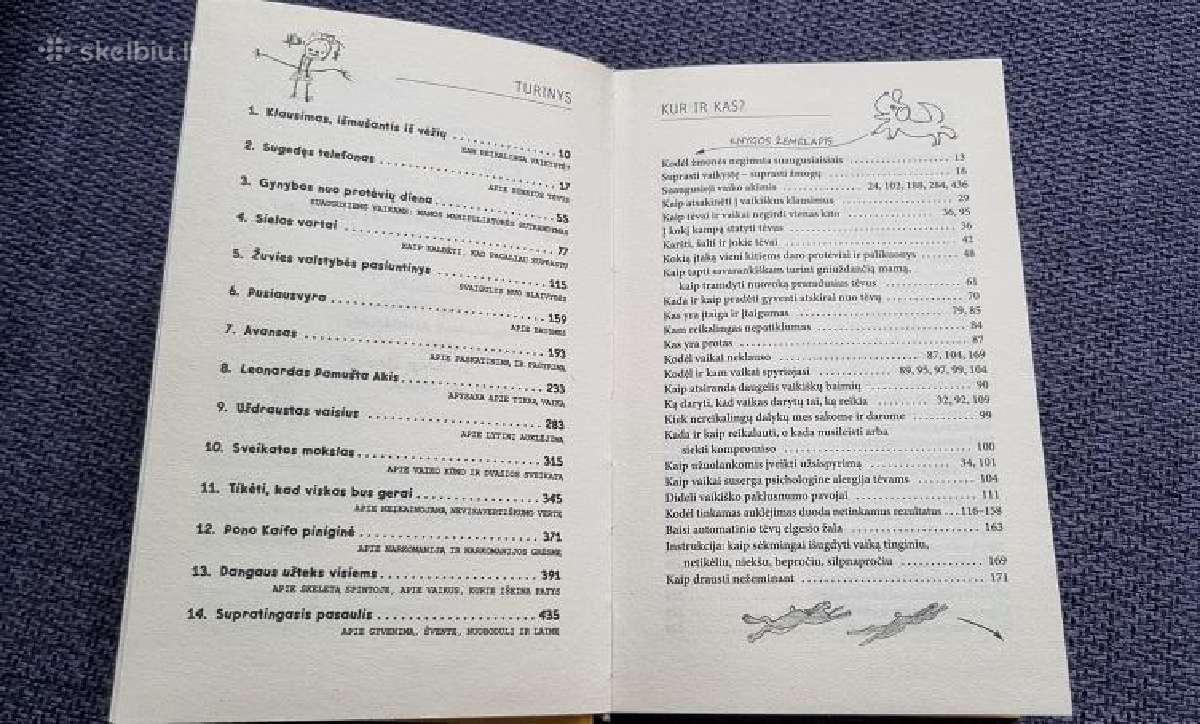 skelbiu.lt
TURINYS
1. Klausimas, išmušantis iš vėžių 10
KAM REIKALINGA VAIKYSTĖ?
2. Sugedęs telefonas 17
APIE SUNKIUS TĖVUS
3. Gynybos nuo protėvių diena 55
SUAUGUSIEMS VAIKAMS: MAMOS MANIPULIATORĖS SUTRAMDYMAS
4. Sielos vartai 77
KAIP KALBĖTI, KAD PAGALIAU SUPRASTŲ
5. Žuvies valstybės pasiuntinys 115
SVAIGULIS NUO BLAIVYBĖS
6. Pusiausvyra 159
APIE BAUSMES
7. Avansas 193
APIE PASKATINIMĄ IR PAGYRIMĄ
8. Leonardas Pamušta Akis 233
APYSAKA APIE TIKRĄ VAIKĄ
9. Uždraustas vaisius 283
APIE LYTINĮ AUKLĖJIMĄ
10. Sveikatos mokslas 315
APIE VAIKO KŪNO IR DVASIOS SVEIKATĄ
11. Tikėti, kad viskas bus gerai 345
APIE NEĮKAINOJAMĄ NEVISAVERTIŠKUMO VERTĘ
12. Pono Kaifo piniginė 371
APIE NARKOMANIJĄ IR NARKOMANIJOS GRĖSMĘ
13. Dangaus užteks visiems 391
APIE SKELETĄ SPINTOJE, APIE VAIKUS, KURIE IŠEINA PATYS
14. Supratingasis pasaulis 435
APIE GYVENIMĄ, ŠVENTĘ, NUOBODULĮ IR LAIMĘ
KUR IR KAS?
KNYGOS ŽEMĖLAPIS
Kodėl žmonės negimsta suaugusiaisiais 13
Suprasti vaikystę – suprasti žmogų 16
Suaugusieji vaiko akimis 24, 102, 188, 284, 436
Kaip atsakinėti į vaikiškus klausimus 29
Kaip tėvai ir vaikai negirdi vienas kito 36, 95
Į kokį kampą statyti tėvus 36
Karšti, šalti ir jokie tėvai 42
Kokią įtaką vieni kitiems daro protėviai ir palikuonys 48
Kaip tapti savarankiškam turint gniuždančią mamą,
kaip tramdyti nuovoką praradusius tėvus 61
Kada ir kaip pradėti gyventi atskirai nuo tėvų 70
Kas yra įtaiga ir įtaigumas 79, 85
Kam reikalingas nepatiklumas 84
Kas yra protas 87
Kodėl vaikai neklauso 87, 104, 169
Kodėl ir kam vaikai spyriojasi 89, 95, 97, 99, 104
Kaip atsiranda daugelis vaikiškų baimių 90
Ką daryti, kad vaikas darytų tai, ką reikia 32, 92, 109
Kiek nereikalingų dalykų mes sakome ir darome 99
Kada ir kaip reikalauti, o kada nusileisti arba
siekti kompromiso 100
Kaip užuolankomis įveikti užsispyrimą 34, 101
Kaip vaikai suserga psichologine alergija tėvams 104
Dideli vaikiško paklusnumo pavojai 111
Kodėl tinkamas auklėjimas duoda netinkamus rezultatus 116–158
Baisi automatinio tėvų elgesio žala 163
Instrukcija: kaip sėkmingai išugdyti vaiką tinginiu,
netikėliu, niekšu, bepročiu, silpnapročiu 169
Kaip drausti nežeminant 171